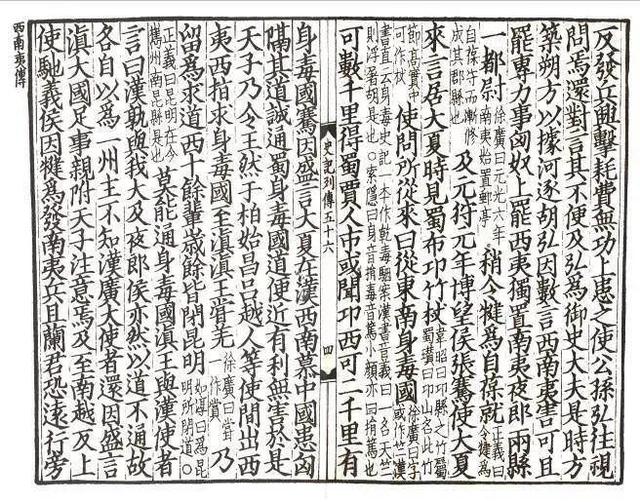 反發兵興擊耗費無功上患之使公孫弘往視
問焉還對言其不便及弘為御史大夫是時方
築朔方以據河逐胡弘因數言西南夷害可且
罷專力事匈奴上罷西夷獨置南夷夜郎兩縣
一都尉徐廣曰元光六年南夷始置郵亭稍令犍為自葆就正義曰令犍為
自葆守而漸修成其郡縣也及元狩元年博望侯張騫使大夏
來言居大夏時見蜀布卭竹杖韋昭曰卭縣之竹屬蜀瓚曰卭山名此竹
節高實中可作杖使問所從來曰從東南身毒國徐廣曰字或作竺漢
書直云身毒史記一本作乾毒駰案漢書音義曰一名天竺則浮屠胡是也○索隱曰身音捐毒音篤小顔亦曰捐篤也
可數千里得蜀賈人市或聞卭西可二千里有
史記列傳五十六
四
身毒國騫因盛言大夏在漢西南慕中國患匈
隔其道誠通蜀身毒國道便近有利無害於是
天子乃令王然于柏始昌呂越人等使間出西
夷西指求身毒國至滇滇王嘗羌徐廣曰嘗一作賞乃
留為求道西十餘輩歲餘皆閉昆明如淳曰為昆明所閉道○
正義曰昆明在今嶲州南昆縣是也莫能通身毒國滇王與漢使者
言曰漢孰與我大及夜郎侯亦然以道不通故
各自以為一州主不知漢廣大使者還因盛言
滇大國足事親附天子注意焉及至南越反上
使馳義侯因犍為發南夷兵且蘭君恐遠行旁
西南夷傳